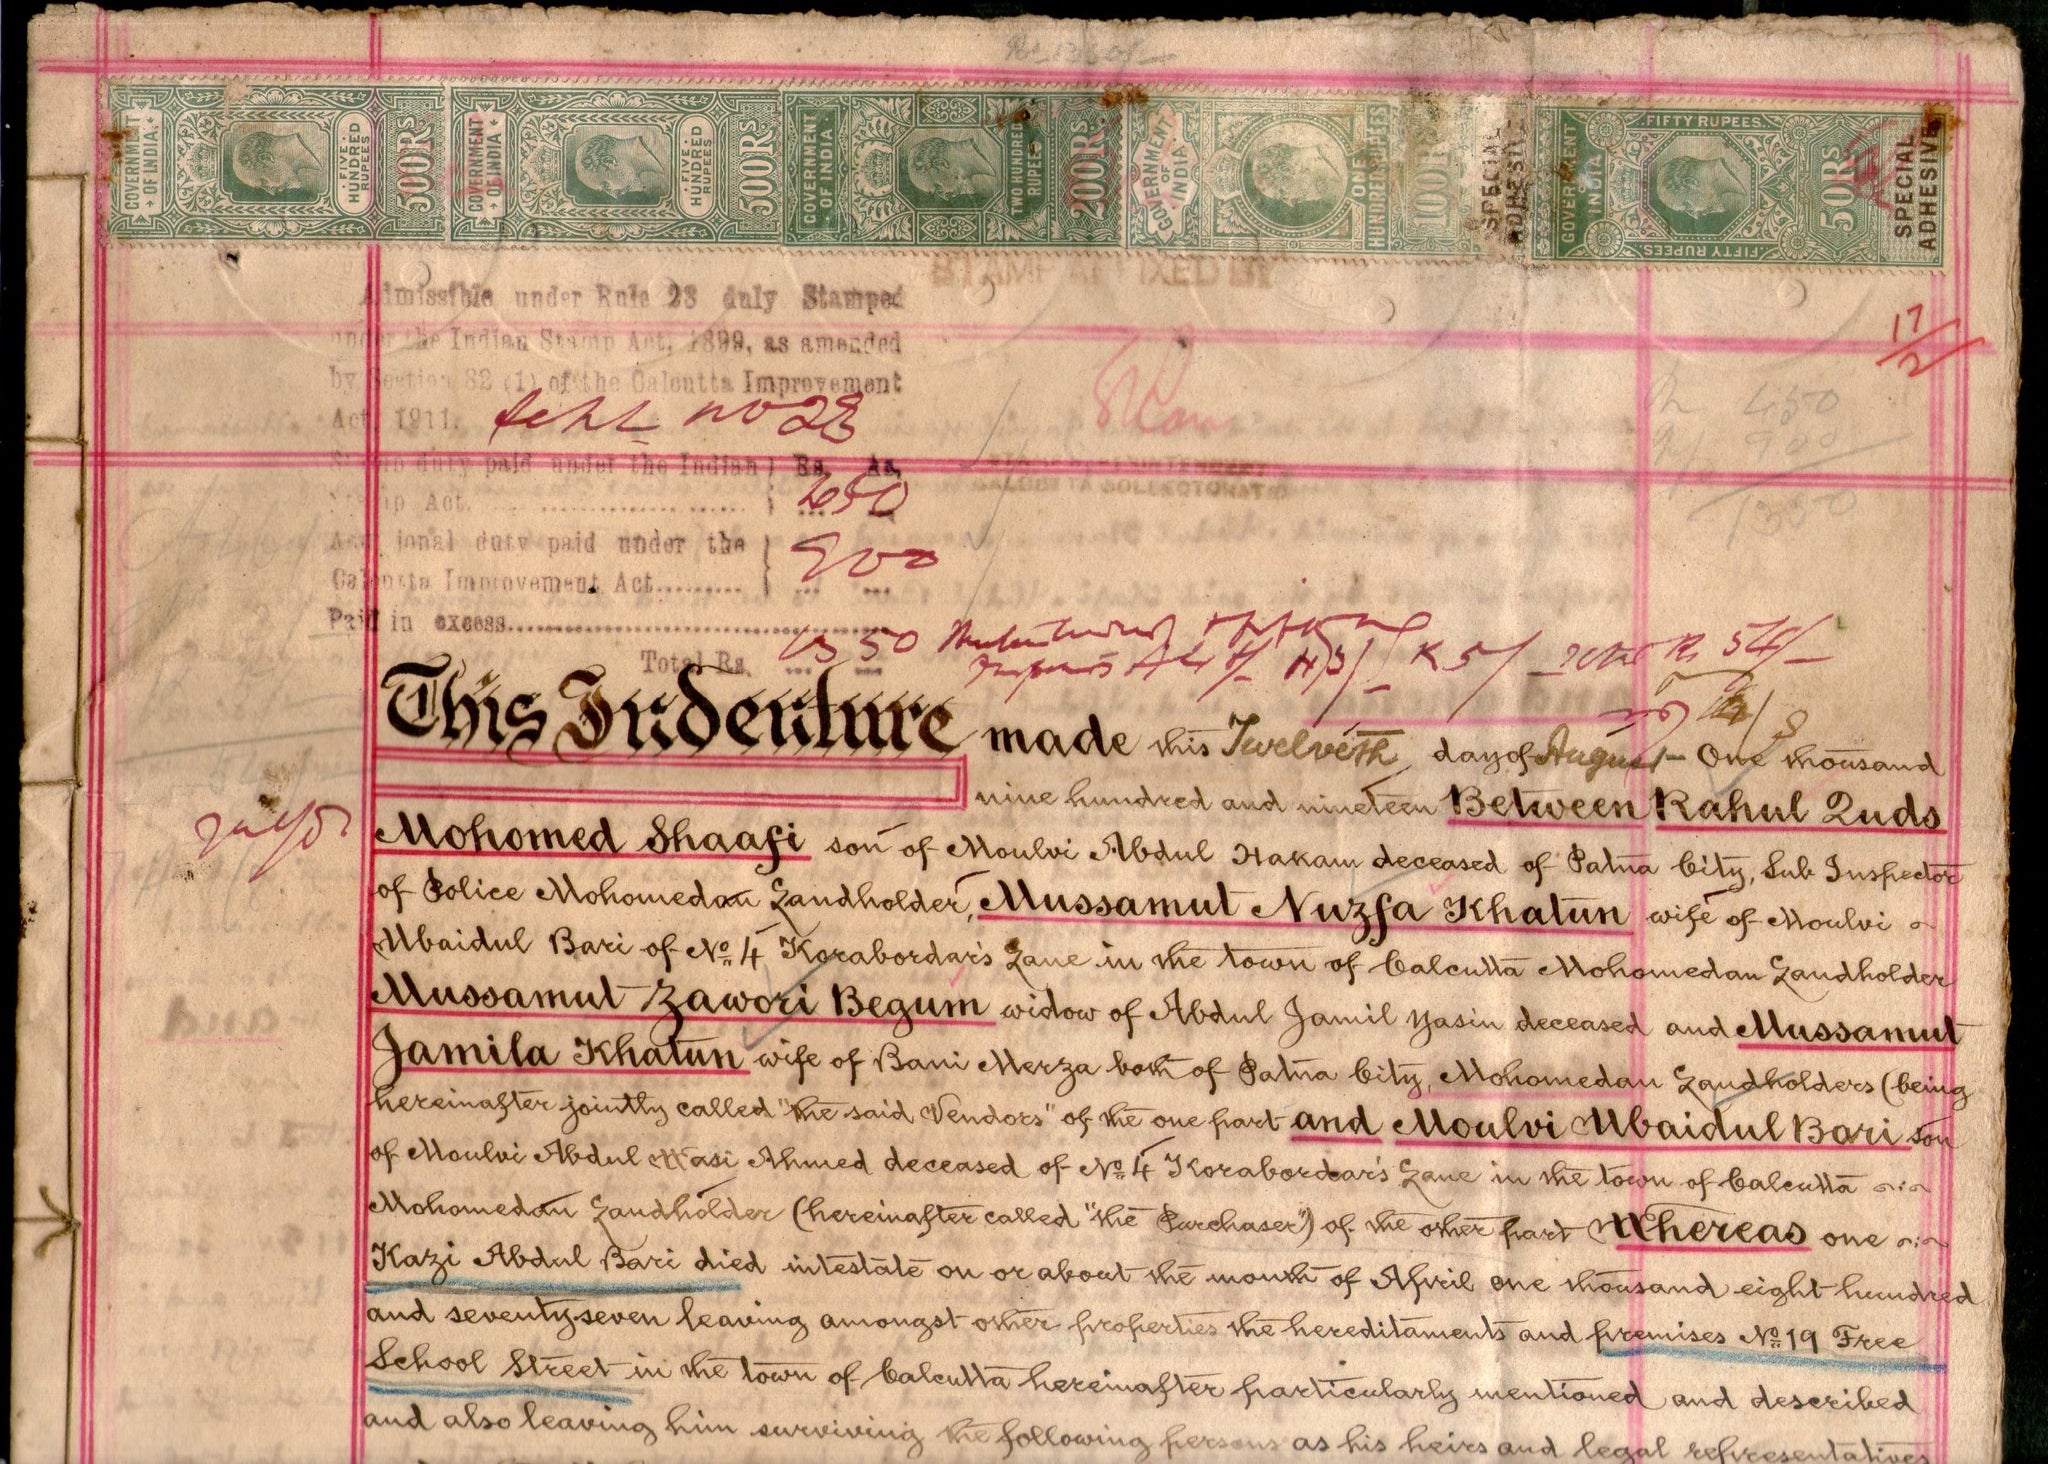 GOVERNMENT OF INDIA FIVE HUNDRED RUPEES 500RS
GOVERNMENT OF INDIA FIVE HUNDRED RUPEES 500RS
GOVERNMENT OF INDIA TWO HUNDRED RUPEES 200RS
GOVERNMENT OF INDIA ONE HUNDRED RUPEES 100RS SPECIAL ADHESIVE
GOVERNMENT INDIA FIFTY RUPEES. FIFTY RUPEES. 50RS SPECIAL ADHESIVE
17/2
Admissible under Rule 23 duly Stamped
under the Indian Stamp Act, 1899, as amended
by Section 82 (1) of the Calcutta Improvement
Act, 1911.
no 23
Stamp duty paid under the Indian } Rs. As.
Stamp Act. 450
Additional duty paid under the
Calcutta Improvement Act......... } 900
Paid in excess
Total Rs 1350
450
900
1350
CALCUTTA COLLECTORATE
A 4 H K 5/- R 54/-
This Indenture made this Twelveth day of August One thousand
nine hundred and nineteen Between Rahul Quds
Mohomed Shaafi son of Moulvi Abdul Hakam deceased of Patna City, Sub Inspector
of Police Mohomedan Landholder, Mussamut Nuzfa Khatun wife of Moulvi
Ubaidul Bari of No. 4 Korabordar's Lane in the town of Calcutta Mohomedan Landholder
Mussamut Zawori Begum widow of Abdul Jamil Yasin deceased and Mussamut
Jamila Khatun wife of Bani Merza both of Patna City, Mohomedan Landholders (being
hereinafter jointly called "the said Vendors" of the one part and Moulvi Ubaidul Bari son
of Moulvi Abdul Wasi Ahmed deceased of No. 4 Korabordar's Lane in the town of Calcutta
Mohomedan Landholder (hereinafter called "the Purchaser") of the other part Whereas one
Kazi Abdul Bari died intestate on or about the month of April one thousand eight hundred
and seventy-seven leaving amongst other properties the hereditaments and premises No. 19 Free
School Street in the town of Calcutta hereinafter particularly mentioned and described
and also leaving him surviving the following persons as his heirs and legal representatives